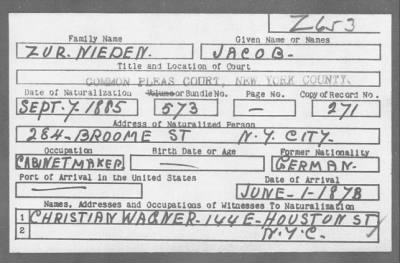 Z653
Family Name Given Name or Names
ZUR. NIEDEN. JACOB-
Title and Location of Court
COMMON PLEAS COURT, NEW YORK COUNTY.
Date of Naturalization Volume or Bundle No. Page No. Copy of Record No.
SEPT. 7-1885 573 — 271
Address of Naturalized Person
284- BROOME ST N.Y. CITY-
Occupation Birth Date or Age Former Nationality
CABINETMAKER — GERMAN-
Port of Arrival in the United States Date of Arrival
— JUNE-1-1878
Names, Addresses and Occupations of Witnesses To Naturalization
1 CHRISTIAN WAGNER-144 E-HOUSTON ST
2 N.Y.C.-